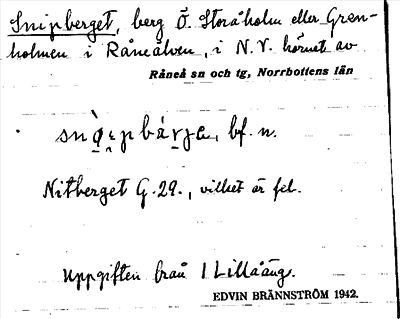 Snipberget, berg Ö. Storåholm eller Gran-
holmen i Råneälven, i N.V. hörnet av
Råneå sn och tg, Norrbottens län
bf. n.
Nitberget G. 29., vilket är fel.
Uppgiften från 1 Lillåäng.
EDVIN BRÄNNSTRÖM 1942.